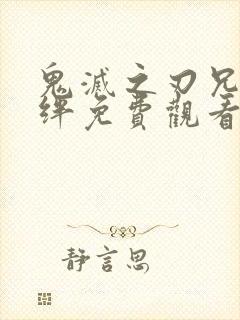 鬼滅之刃兄
絆免費觀看
静言思